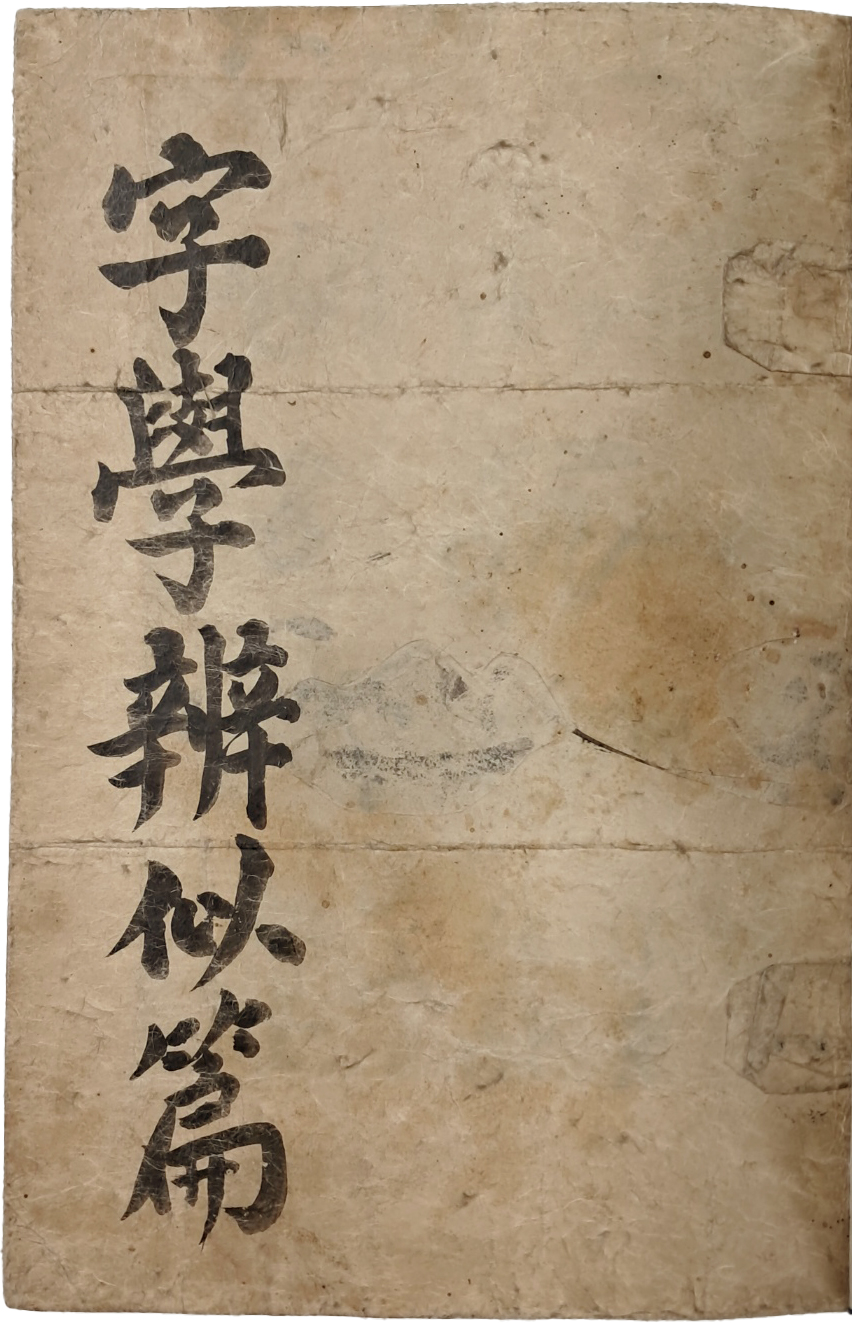 字學辨似篇